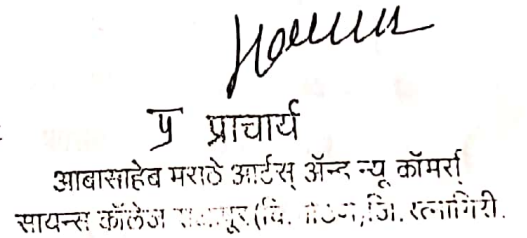 प्र प्राचार्य
आबासाहेब मराठे आर्टस् ॲन्ड न्यू कॉमर्स
सायन्स कॉलेज जि. रत्नागिरी.